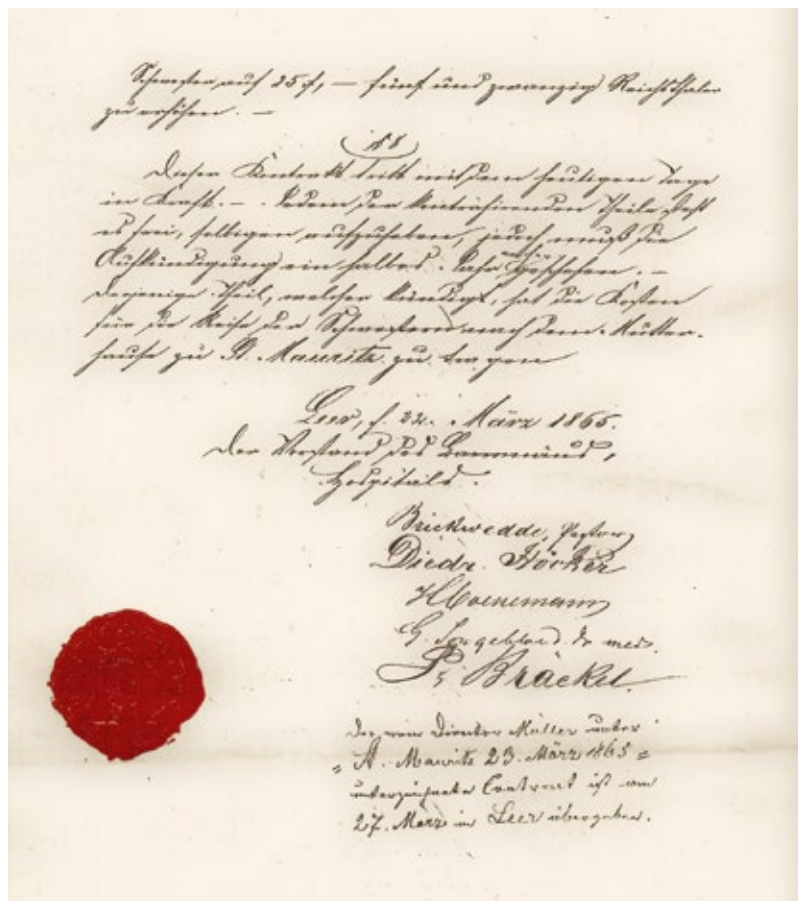 Schwester auf 25 ₰, — fünf und zwanzig Reichsthaler
zu erhöhen. —
§ 8
Dieser Kontrakt tritt mit dem heutigen Tage
in Kraft. — . Jedem der kontrahirenden Theile steht
es frei, selbigen aufzuheben, jedoch muß die
Aufkündigung ein halbes Jahr vorher geschehen. —
Derjenige Theil, welcher kündigt, hat die Kosten
für die Reise der Schwestern nach dem Mutter-
hause zu St. Mauritz zu tragen
Leer, d. 22. März 1865.
Der Vorstand des Borromäus,
Hospitals.
Brickwedde, Pastor
Diedr. Höcker
G. dr med.
Bräckel.
Der vom Director Müller unter
St. Mauritz 23. März 1865
unterzeichnete Contract ist am
27. März in Leer übergeben.